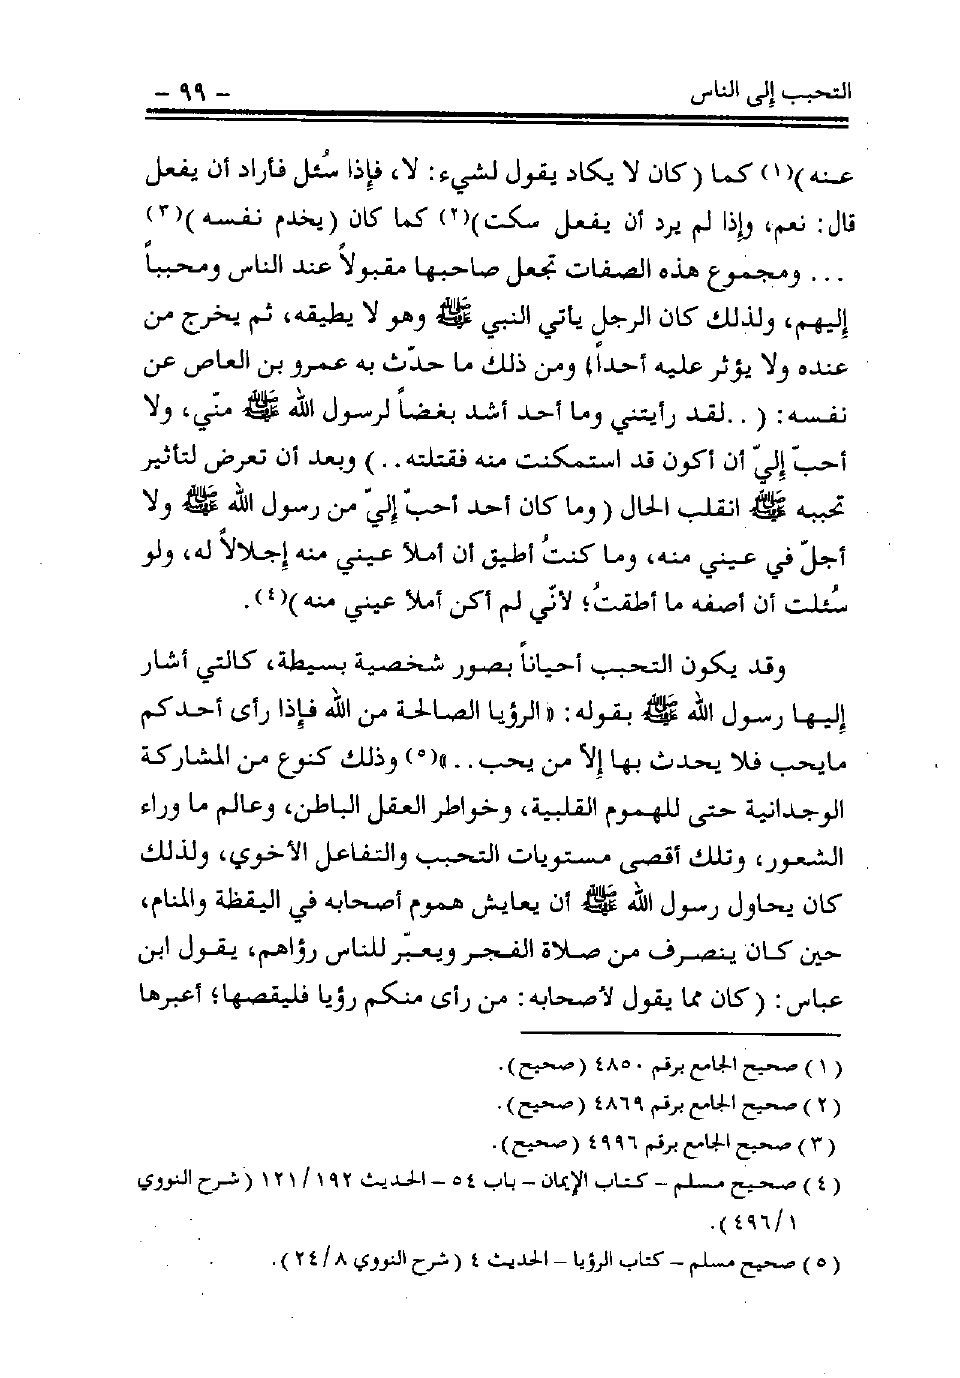 التحبب إلى الناس
- ٩٩ -
عنه )(١) كما ( كان لا يكاد يقول لشيء : لا، فإذا سُئل فأراد أن يفعل
قال : نعم، وإذا لم يرد أن يفعل سكت)(٢) كما كان ( يخدم نفسه )(٣)
... ومجموع هذه الصفات تجعل صاحبها مقبولاً عند الناس ومحبباً
إليهم، ولذلك كان الرجل يأتي النبي ﷺ وهو لا يطيقه، ثم يخرج من
عنده ولا يؤثر عليه أحداً، ومن ذلك ما حدّث به عمرو بن العاص عن
نفسه : ( ..لقد رأيتني وما أحد أشد بغضاً لرسول الله ﷺ منّي، ولا
أحبّ إليّ أن أكون قد استمكنت منه فقتلته..) وبعد أن تعرض لتأثير
تحببه ﷺ انقلب الحال ( وما كان أحد أحبّ إليّ من رسول الله ﷺ ولا
أجلّ في عيني منه، وما كنتُ أطيق أن أملأ عيني منه إجلالاً له، ولو
سُئلت أن أصفه ما أطقتُ؛ لأنّي لم أكن أملأ عيني منه )(٤).
وقد يكون التحبب أحياناً بصور شخصية بسيطة، كالتي أشار
إليها رسول الله ﷺ بقوله : « الرؤيا الصالحة من الله فإذا رأى أحدكم
مايحب فلا يحدث بها إلاّ من يحب .. »(٥) وذلك كنوع من المشاركة
الوجدانية حتى للهموم القلبية، وخواطر العقل الباطن، وعالم ما وراء
الشعور، وتلك أقصى مستويات التحبب والتفاعل الأخوي، ولذلك
كان يحاول رسول الله ﷺ أن يعايش هموم أصحابه في اليقظة والمنام،
حين كان ينصرف من صلاة الفجر ويعبّر للناس رؤاهم، يقول ابن
عباس : ( كان مما يقول لأصحابه : من رأى منكم رؤيا فليقصها؛ أعبرها
( ١ ) صحيح الجامع برقم ٤٨٥٠ ( صحيح ).
( ٢ ) صحيح الجامع برقم ٤٨٦٩ ( صحيح ).
( ٣ ) صحيح الجامع برقم ٤٩٩٦ ( صحيح ).
( ٤ ) صحيح مسلم – كتاب الإيمان – باب ٥٤ – الحديث ١٩٢/ ١٢١ ( شرح النووي
١/ ٤٩٦ ).
( ٥ ) صحيح مسلم – كتاب الرؤيا – الحديث ٤ ( شرح النووي ٨/ ٢٤ ).